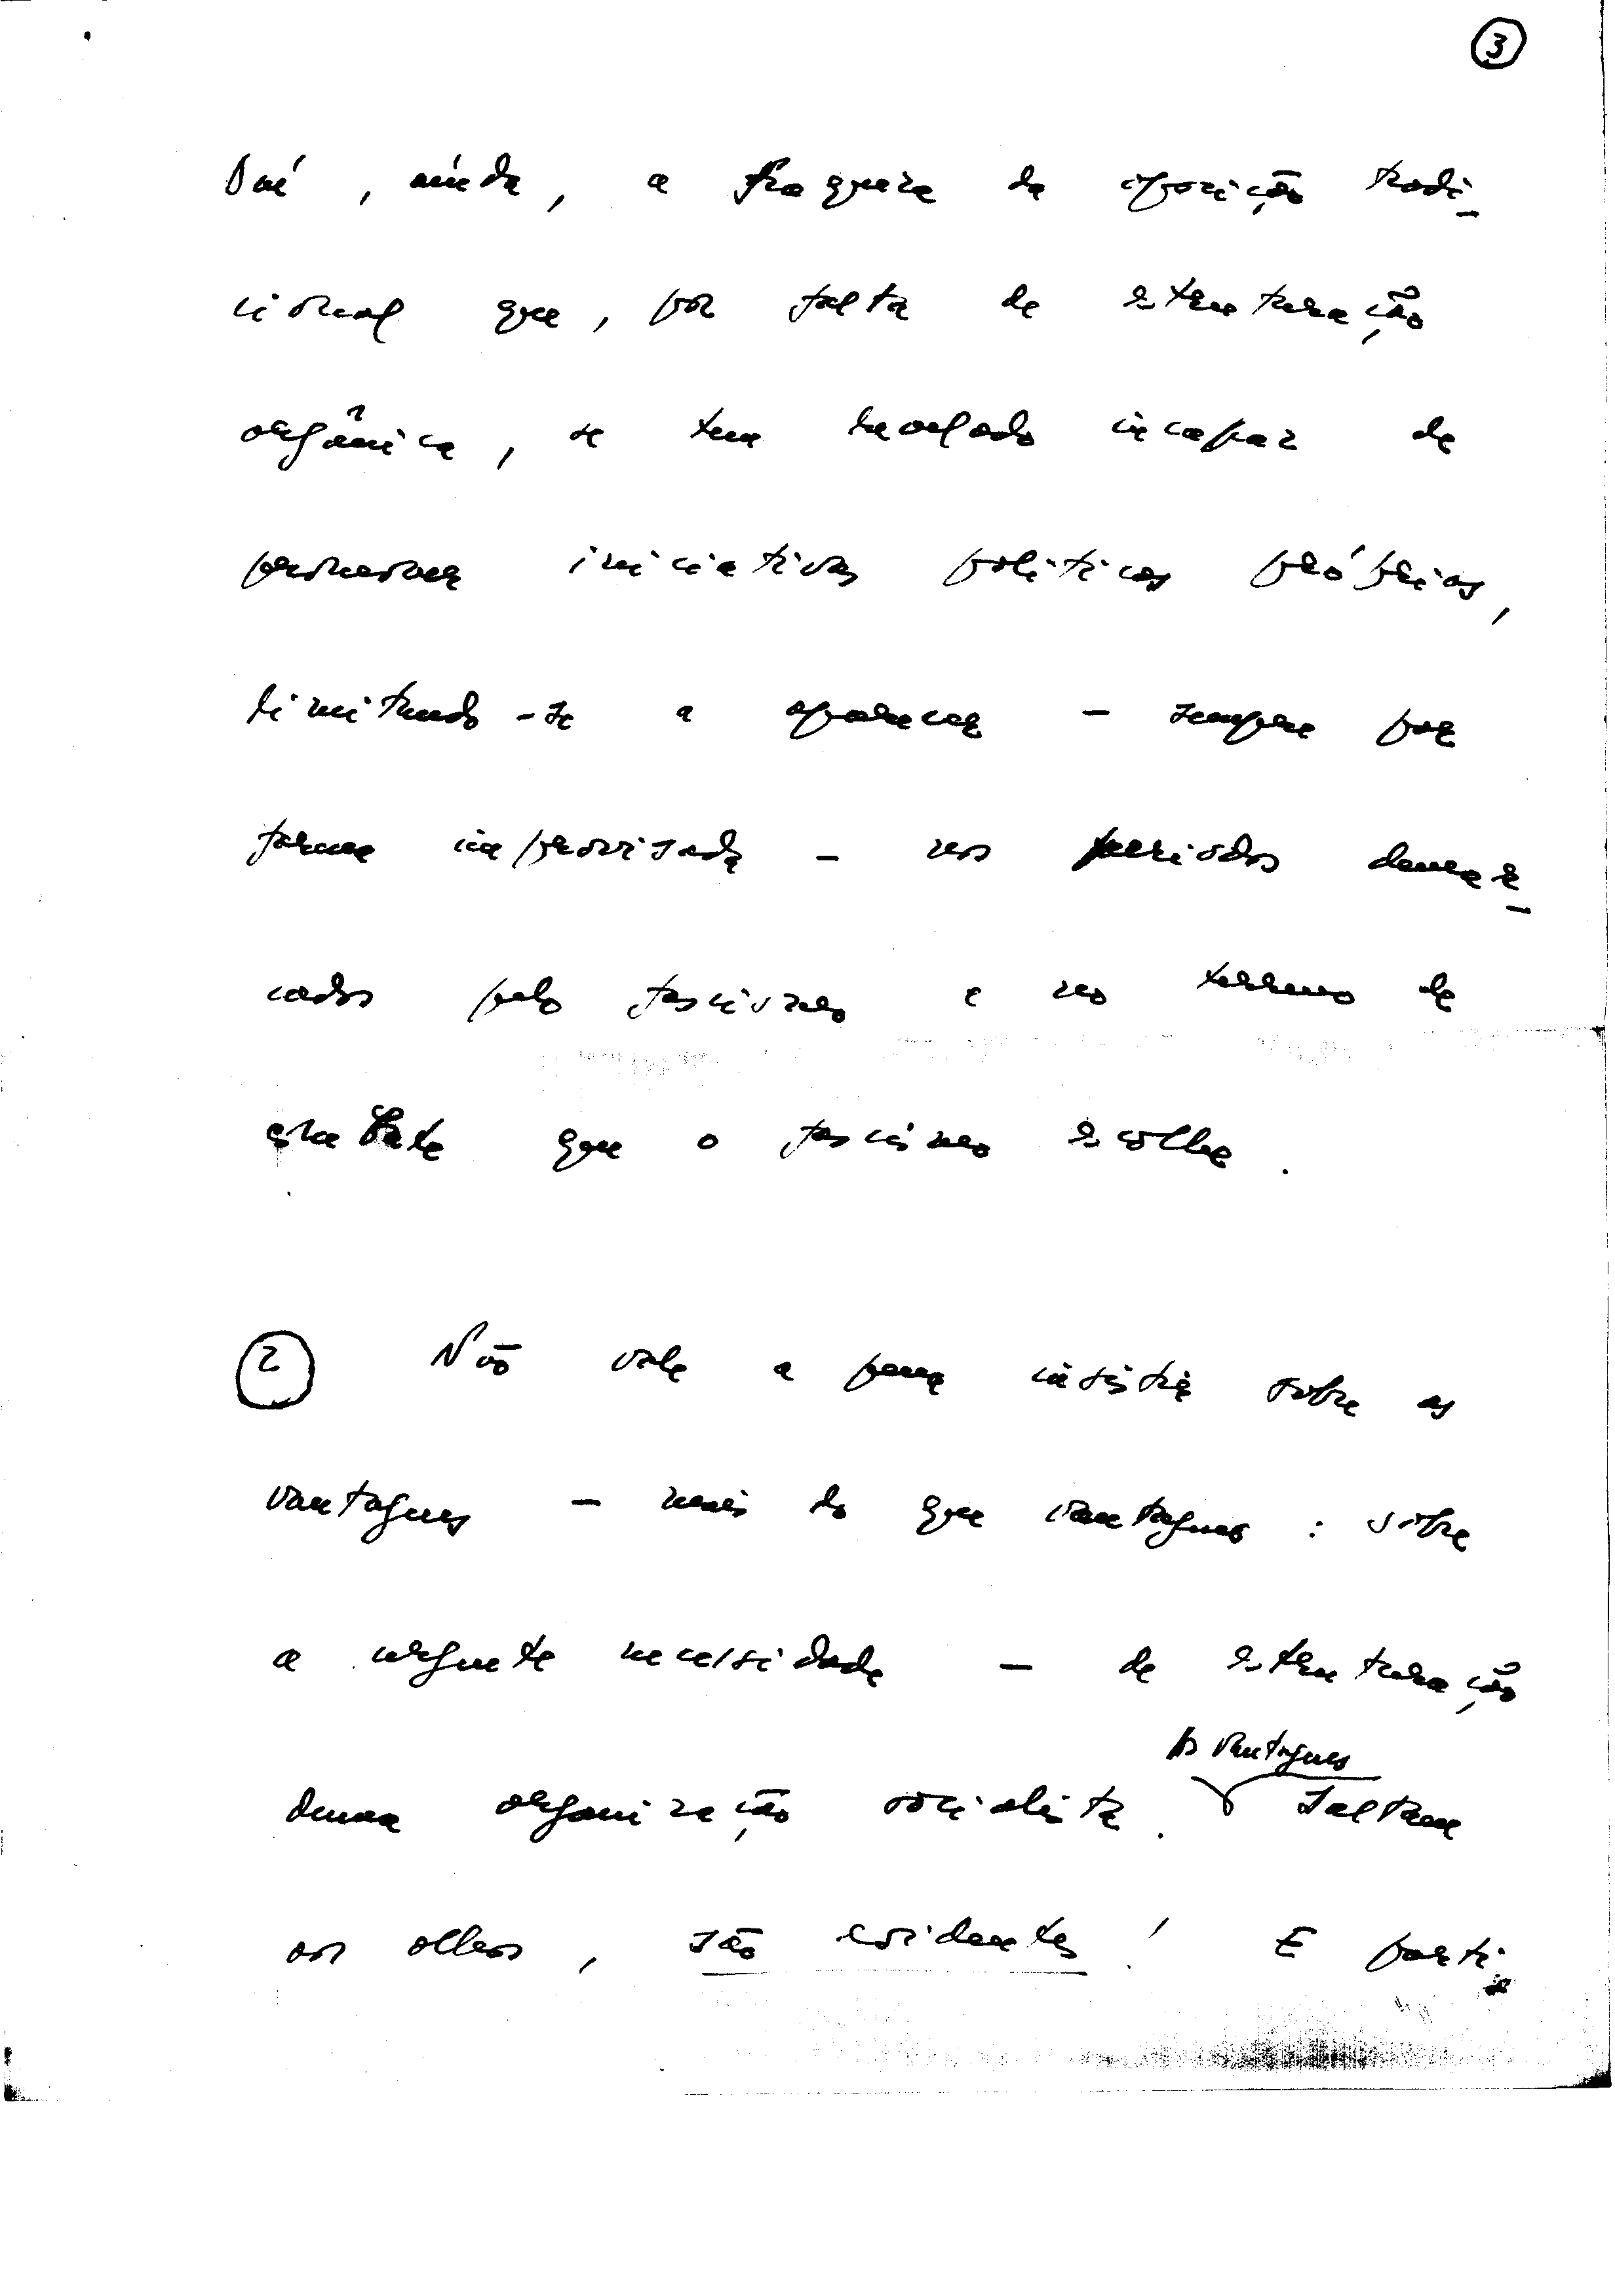 3
Daí, ainda, a fraqueza da oposição tradi-
cional que, por falta de estruturação
orgânica, se tem revelado incapaz de
promover iniciativas políticas próprias,
limitando-se a aparecer - sempre por
forma improvisada - nos períodos demar-
cados pelo fascismo e no terreno de
combate que o fascismo escolhe.
2 Não vale a pena insistir sobre as
vantagens - mais do que vantagens: sobre
a urgente necessidade - de estruturação
As vantagens
duma organização socialista. Saltam
aos olhos, são evidentes! E parti-